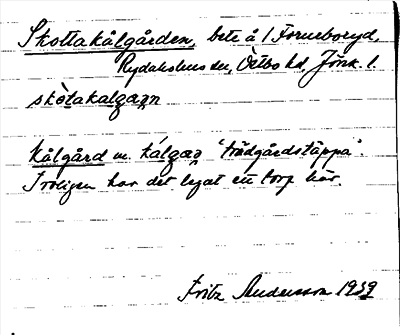 Skottakålgården, bete å 1 Forneboryd,
Rydaholms sn, Östbo hd, Jönk. l.
skòtakalgaɲ
kålgård m. kálgaɲ "trädgårdstäppa".
Troligen har det legat ett torp här.
Fritz Andersson 1939